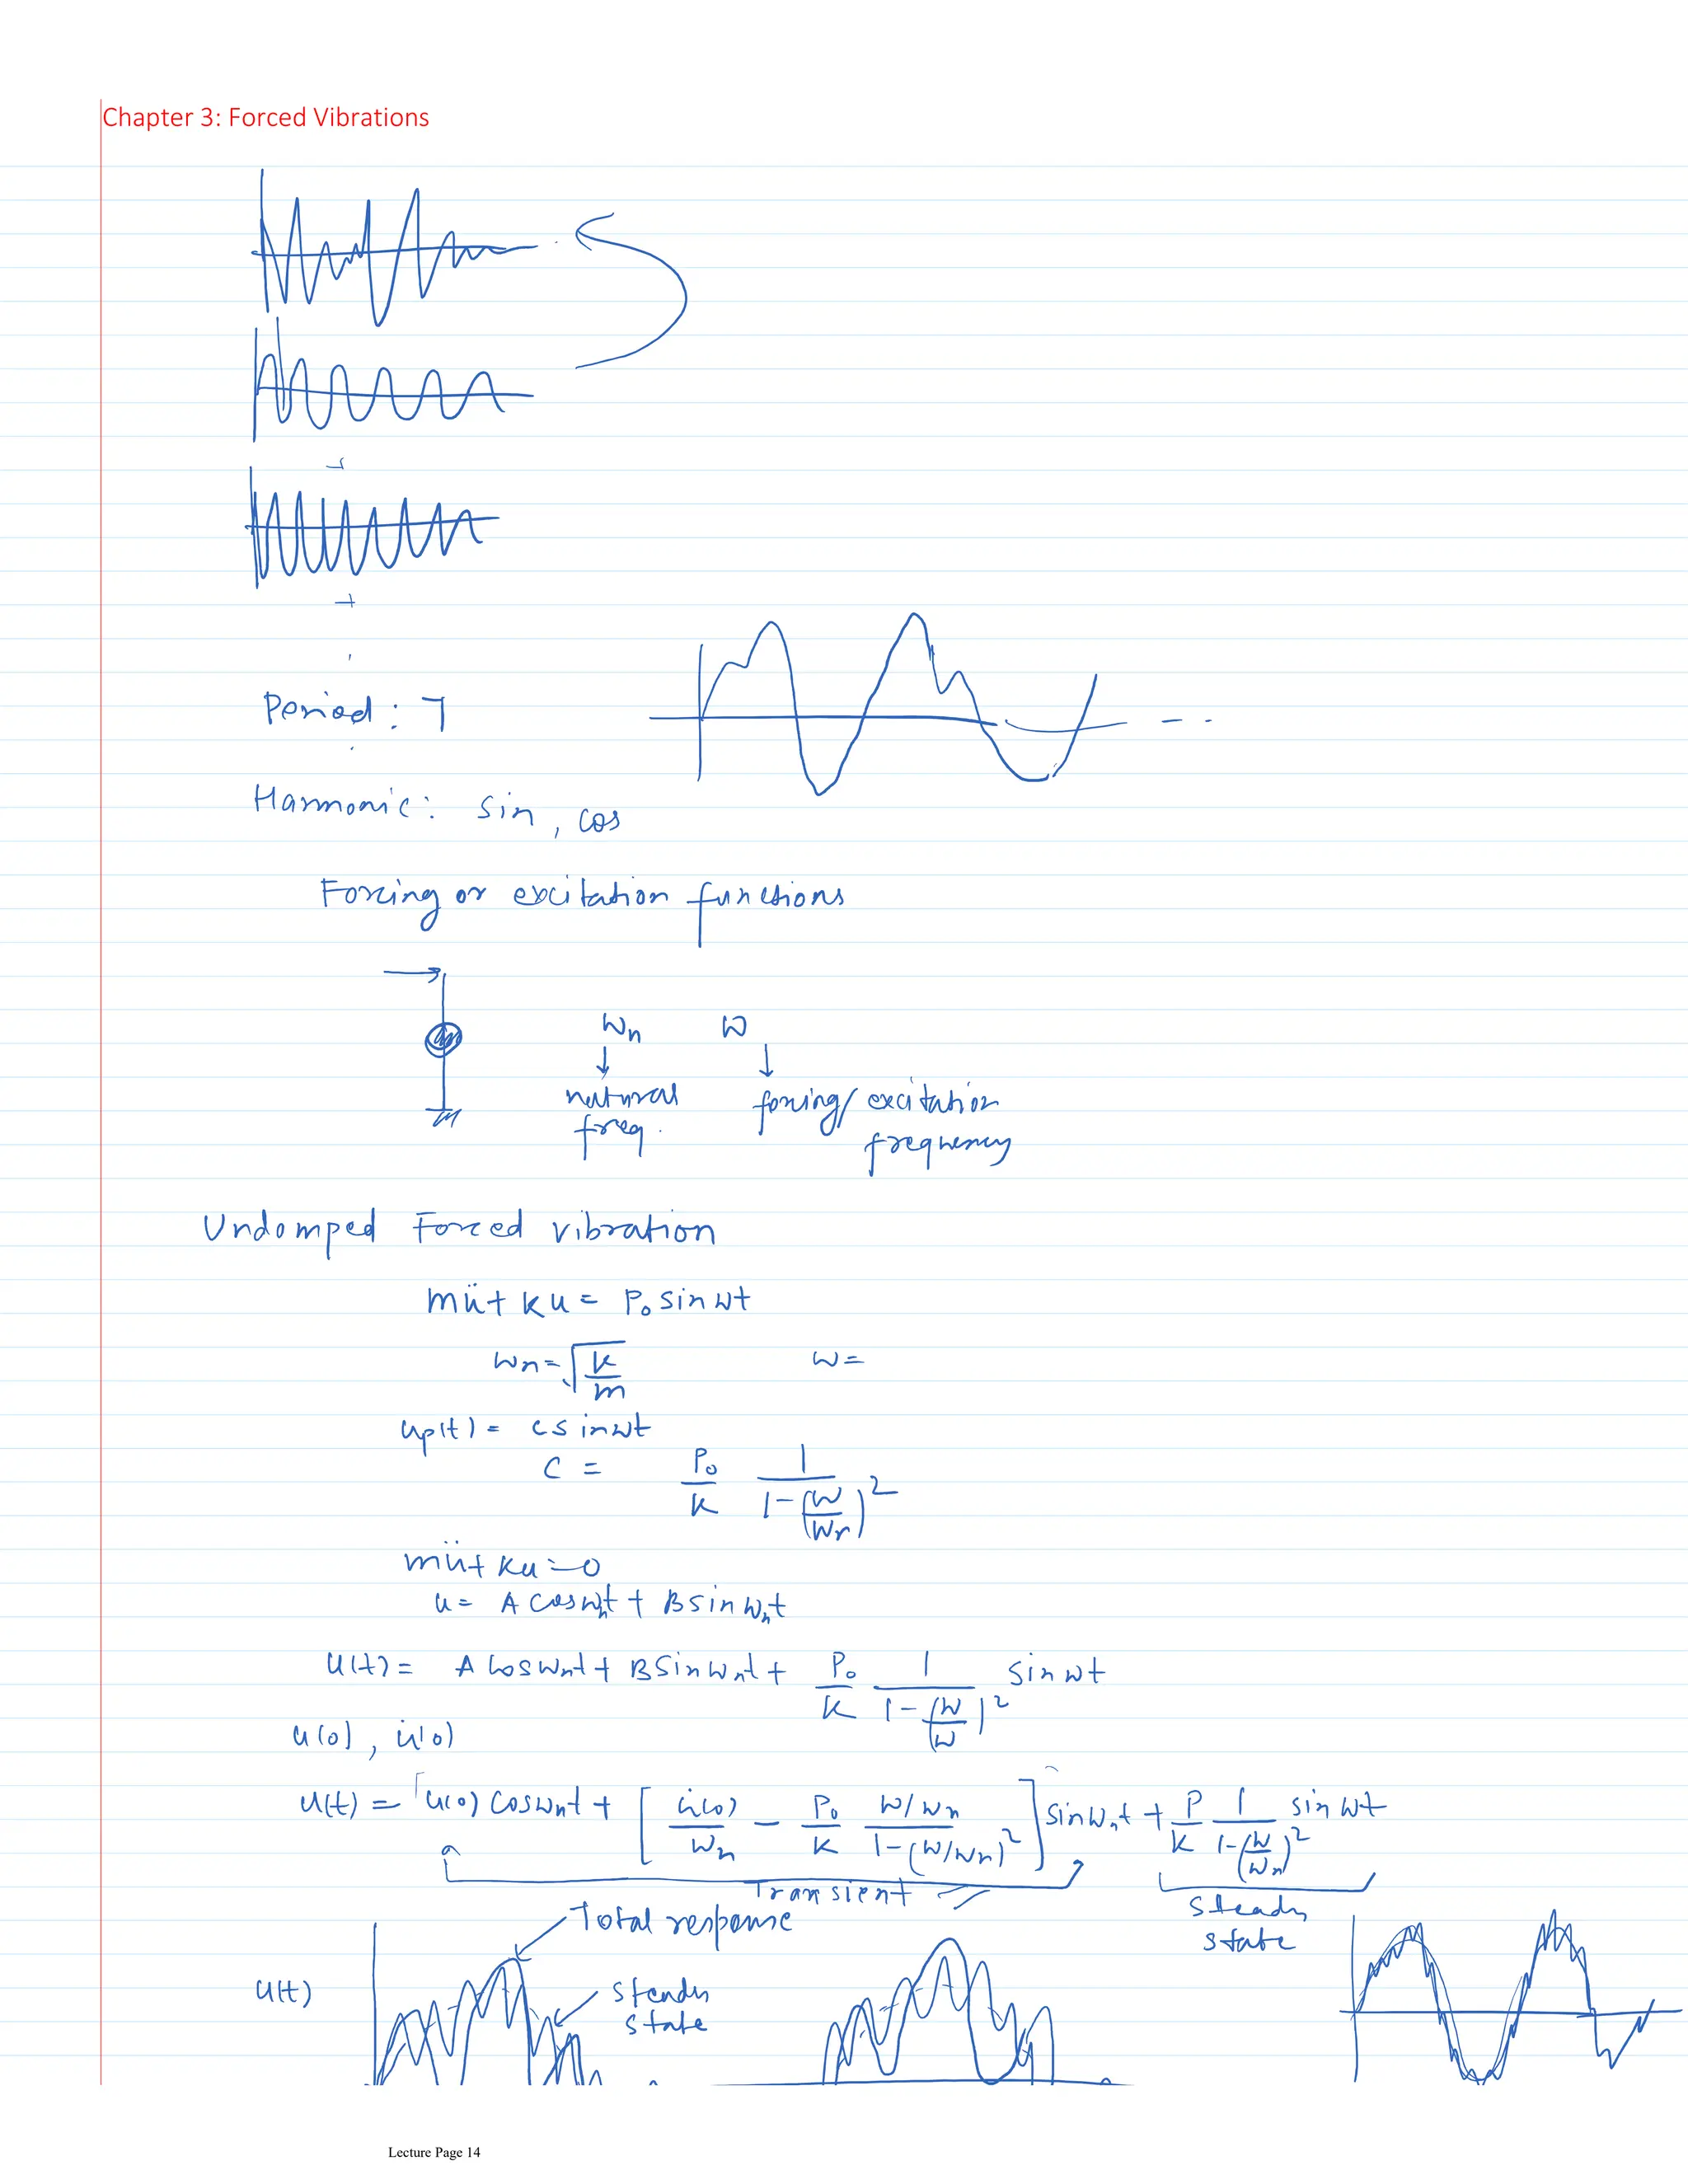 Chapter 3: Forced Vibrations
+
+
Period: T
Harmonic: sin, cos
Forcing or excitation functions
ωn ω
natural freq.
forcing/excitation frequency
Undamped Forced vibration
mü + ku = P₀ sin ωt
ωn = √(k/m) ω =
up(t) = C sin ωt
C = P₀/k 1/(1-(ω/ωn)²)
mü + ku = 0
u = A cos ωnt + B sin ωnt
u(t) = A cos ωnt + B sin ωnt + P₀/k 1/(1-(ω/ω)²) sin ωt
u(0), u̇(0)
u(t) = u(0) cos ωnt + [u̇(0)/ωn - P₀/k (ω/ωn)/(1-(ω/ωn)²)] sin ωnt + P/k 1/(1-(ω/ωn)²) sin ωt
Transient
steady state
Total response
u(t)
steady state
Lecture Page 14